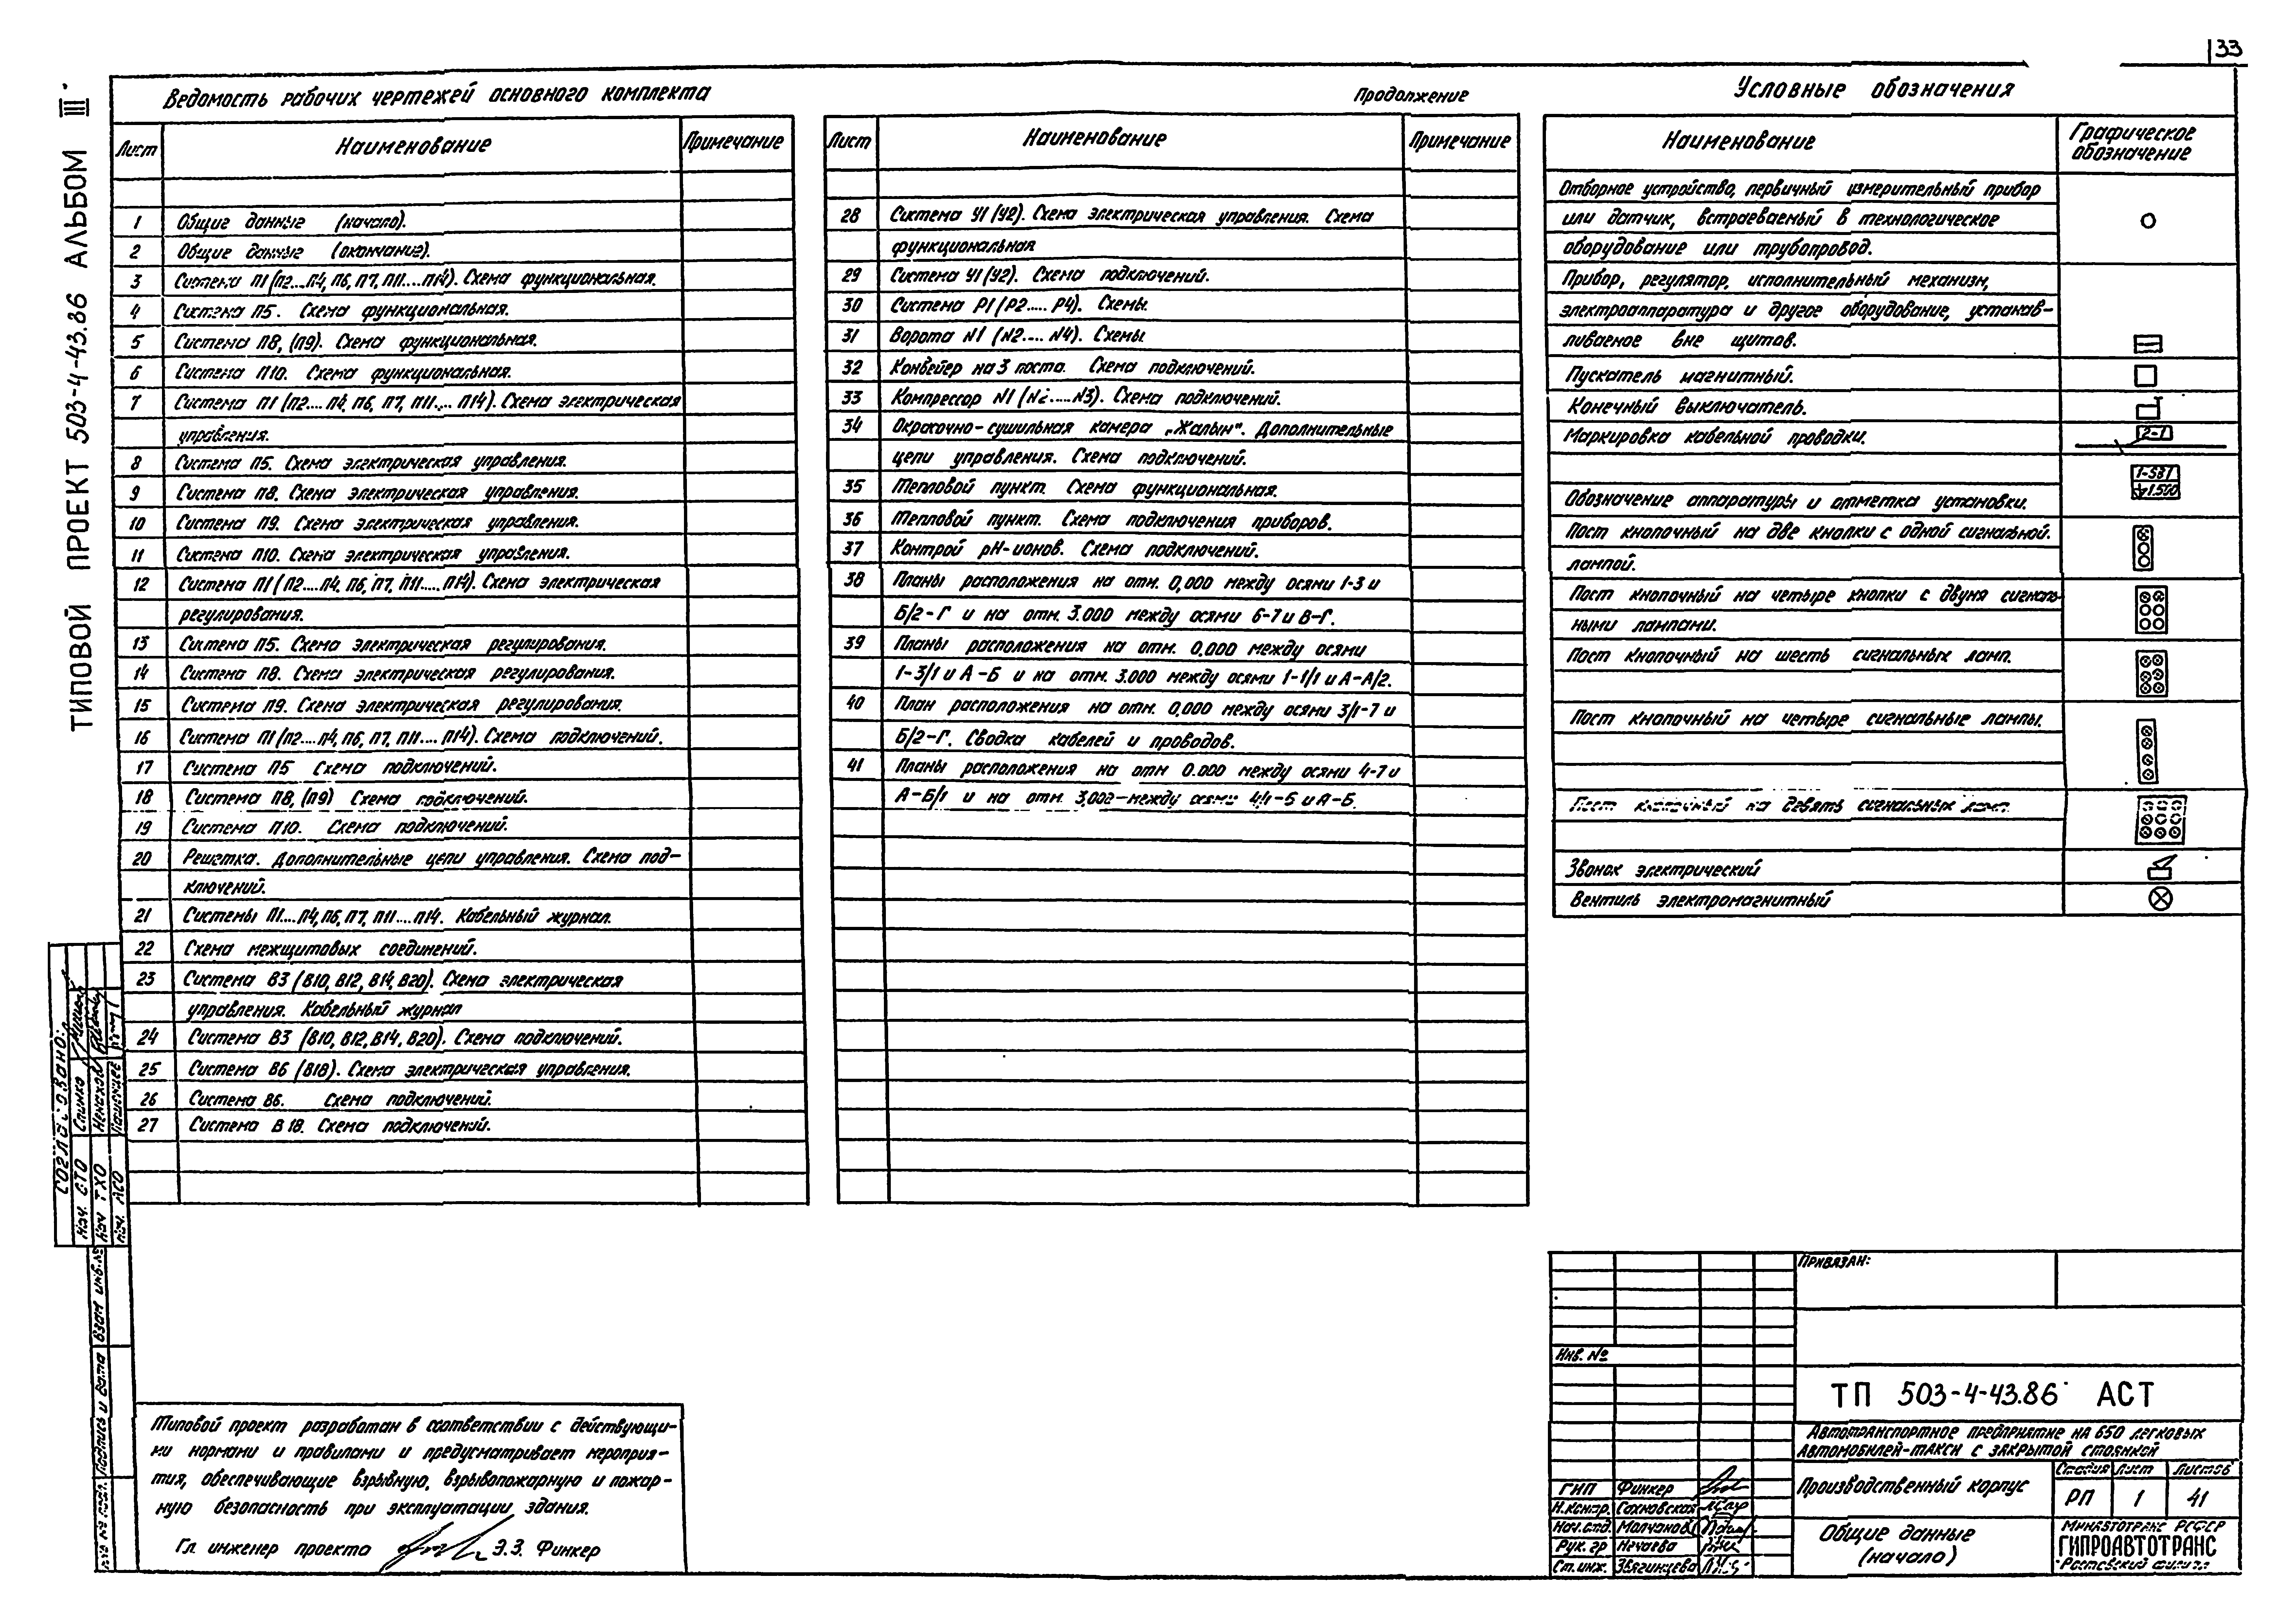 33
ТИПОВОЙ ПРОЕКТ 503-4-43.86 АЛЬБОМ III
Ведомость рабочих чертежей основного комплекта
Лист Наименование Примечание
1 Общие данные (начало).
2 Общие данные (окончание).
3 Система П1 (П2...П4, П6, П7, П11...П14). Схема функциональная.
4 Система П5. Схема функциональная.
5 Система П8, (П9). Схема функциональная.
6 Система П10. Схема функциональная.
7 Система П1 (П2...П4, П6, П7, П11... П14). Схема электрическая
управления.
8 Система П5. Схема электрическая управления.
9 Система П8. Схема электрическая управления.
10 Система П9. Схема электрическая управления.
11 Система П10. Схема электрическая управления.
12 Система П1 (П2...П4, П6, П7, П11.... П14). Схема электрическая
регулирования.
13 Система П5. Схема электрическая регулирования.
14 Система П8. Схема электрическая регулирования.
15 Система П9. Схема электрическая регулирования.
16 Система П1 (П2...П4, П6, П7, П11... П14). Схема подключений.
17 Система П5 Схема подключений.
18 Система П8, (П9) Схема подключений.
19 Система П10. Схема подключений.
20 Решетка. Дополнительные цепи управления. Схема под-
ключений.
21 Системы П1...П4, П6, П7, П11...П14. Кабельный журнал.
22 Схема межщитовых соединений.
23 Система В3 (В10, В12, В14, В20). Схема электрическая
управления. Кабельный журнал
24 Система В3 (В10, В12, В14, В20). Схема подключений.
25 Система В6 (В18). Схема электрическая управления.
26 Система В6. Схема подключений.
27 Система В 18. Схема подключений.
Продолжение
Лист Наименование Примечание
28 Система У1 (У2). Схема электрическая управления. Схема
функциональная
29 Система У1 (У2). Схема подключений.
30 Система Р1 (Р2..... Р4). Схемы.
31 Ворота N1 (N2.... N4). Схемы.
32 Конвейер на 3 поста. Схема подключений.
33 Компрессор N1 (N2....N3). Схема подключений.
34 Окрасочно-сушильная камера „Жалын". Дополнительные
цепи управления. Схема подключений.
35 Тепловой пункт. Схема функциональная.
36 Тепловой пункт. Схема подключения приборов.
37 Контрой рН-ионов. Схема подключений.
38 Планы расположения на отм. 0,000 между осями 1-3 и
Б/2-Г и на отм. 3.000 между осями 6-7 и В-Г.
39 Планы расположения на отм. 0.000 между осями
1-3/1 и А-Б и на отм. 3.000 между осями 1-1/1 и А-А/2.
40 План расположения на отм. 0,000 между осями 3/1-7 и
Б/2-Г. Сводка кабелей и проводов.
41 Планы расположения на отм 0.000 между осями 4-7 и
А-Б/1 и на отм. 3,000-между осями 4/1-5 и А-Б.
Условные обозначения
Наименование Графическое
обозначение
Отборное устройство, первичный измерительный прибор
или датчик, встраеваемый в технологическое
оборудование или трубопровод.
Прибор, регулятор, исполнительный механизм,
электроаппаратура и другое оборудование, устанав-
ливаемое вне щитов.
Пускатель магнитный.
Конечный выключатель.
Маркировка кабельной проводки. 2-1
1-SB1
1.500
Обозначение аппаратуры и отметка установки.
Пост кнопочный на две кнопки с одной сигнальной.
лампой.
Пост кнопочный на четыре кнопки с двумя сигналь-
ными лампами.
Пост кнопочный на шесть сигнальных ламп.
Пост кнопочный на четыре сигнальные лампы.
Пост кнопочный на девять сигнальных ламп.
Звонок электрический
Вентиль электромагнитный
СОГЛАСОВАНО:
Нач. СТО Слинко
Нач ТХО
Нач. АСО
Взам инв.№
Подпись и дата
Инв № подл.
Типовой проект разработан в соответствии с действующи-
ми нормами и правилами и предусматривает мероприя-
тия, обеспечивающие взрывную, взрывопожарную и пожар-
ную безопасность при эксплуатации здания.
Гл инженер проекта Э.З. Финкер
ПРИВЯЗАН:
Инв. №
ТП 503-4-43.86 АСТ
Автотранспортное предприятие на 650 легковых
автомобилей-такси с закрытой стоянкой
ГИП Финкер
Н.контр. Сахновская
Нач.отд. Молчанов
Рук. гр Нечаева
Ст.инж. Звягинцева
Производственный корпус
Стадия Лист Листов
РП 1 41
Общие данные
(начало)
Минавтотранс РСФСР
ГИПРОАВТОТРАНС
Ростовский филиал